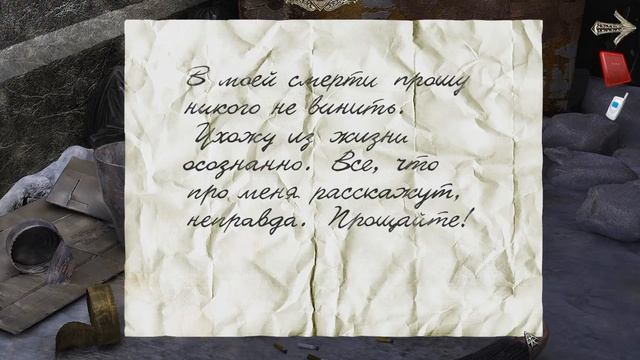 В моей смерти прошу
никого не винить.
Ухожу из жизни
осознанно. Все, что
про меня расскажут,
неправда. Прощайте!